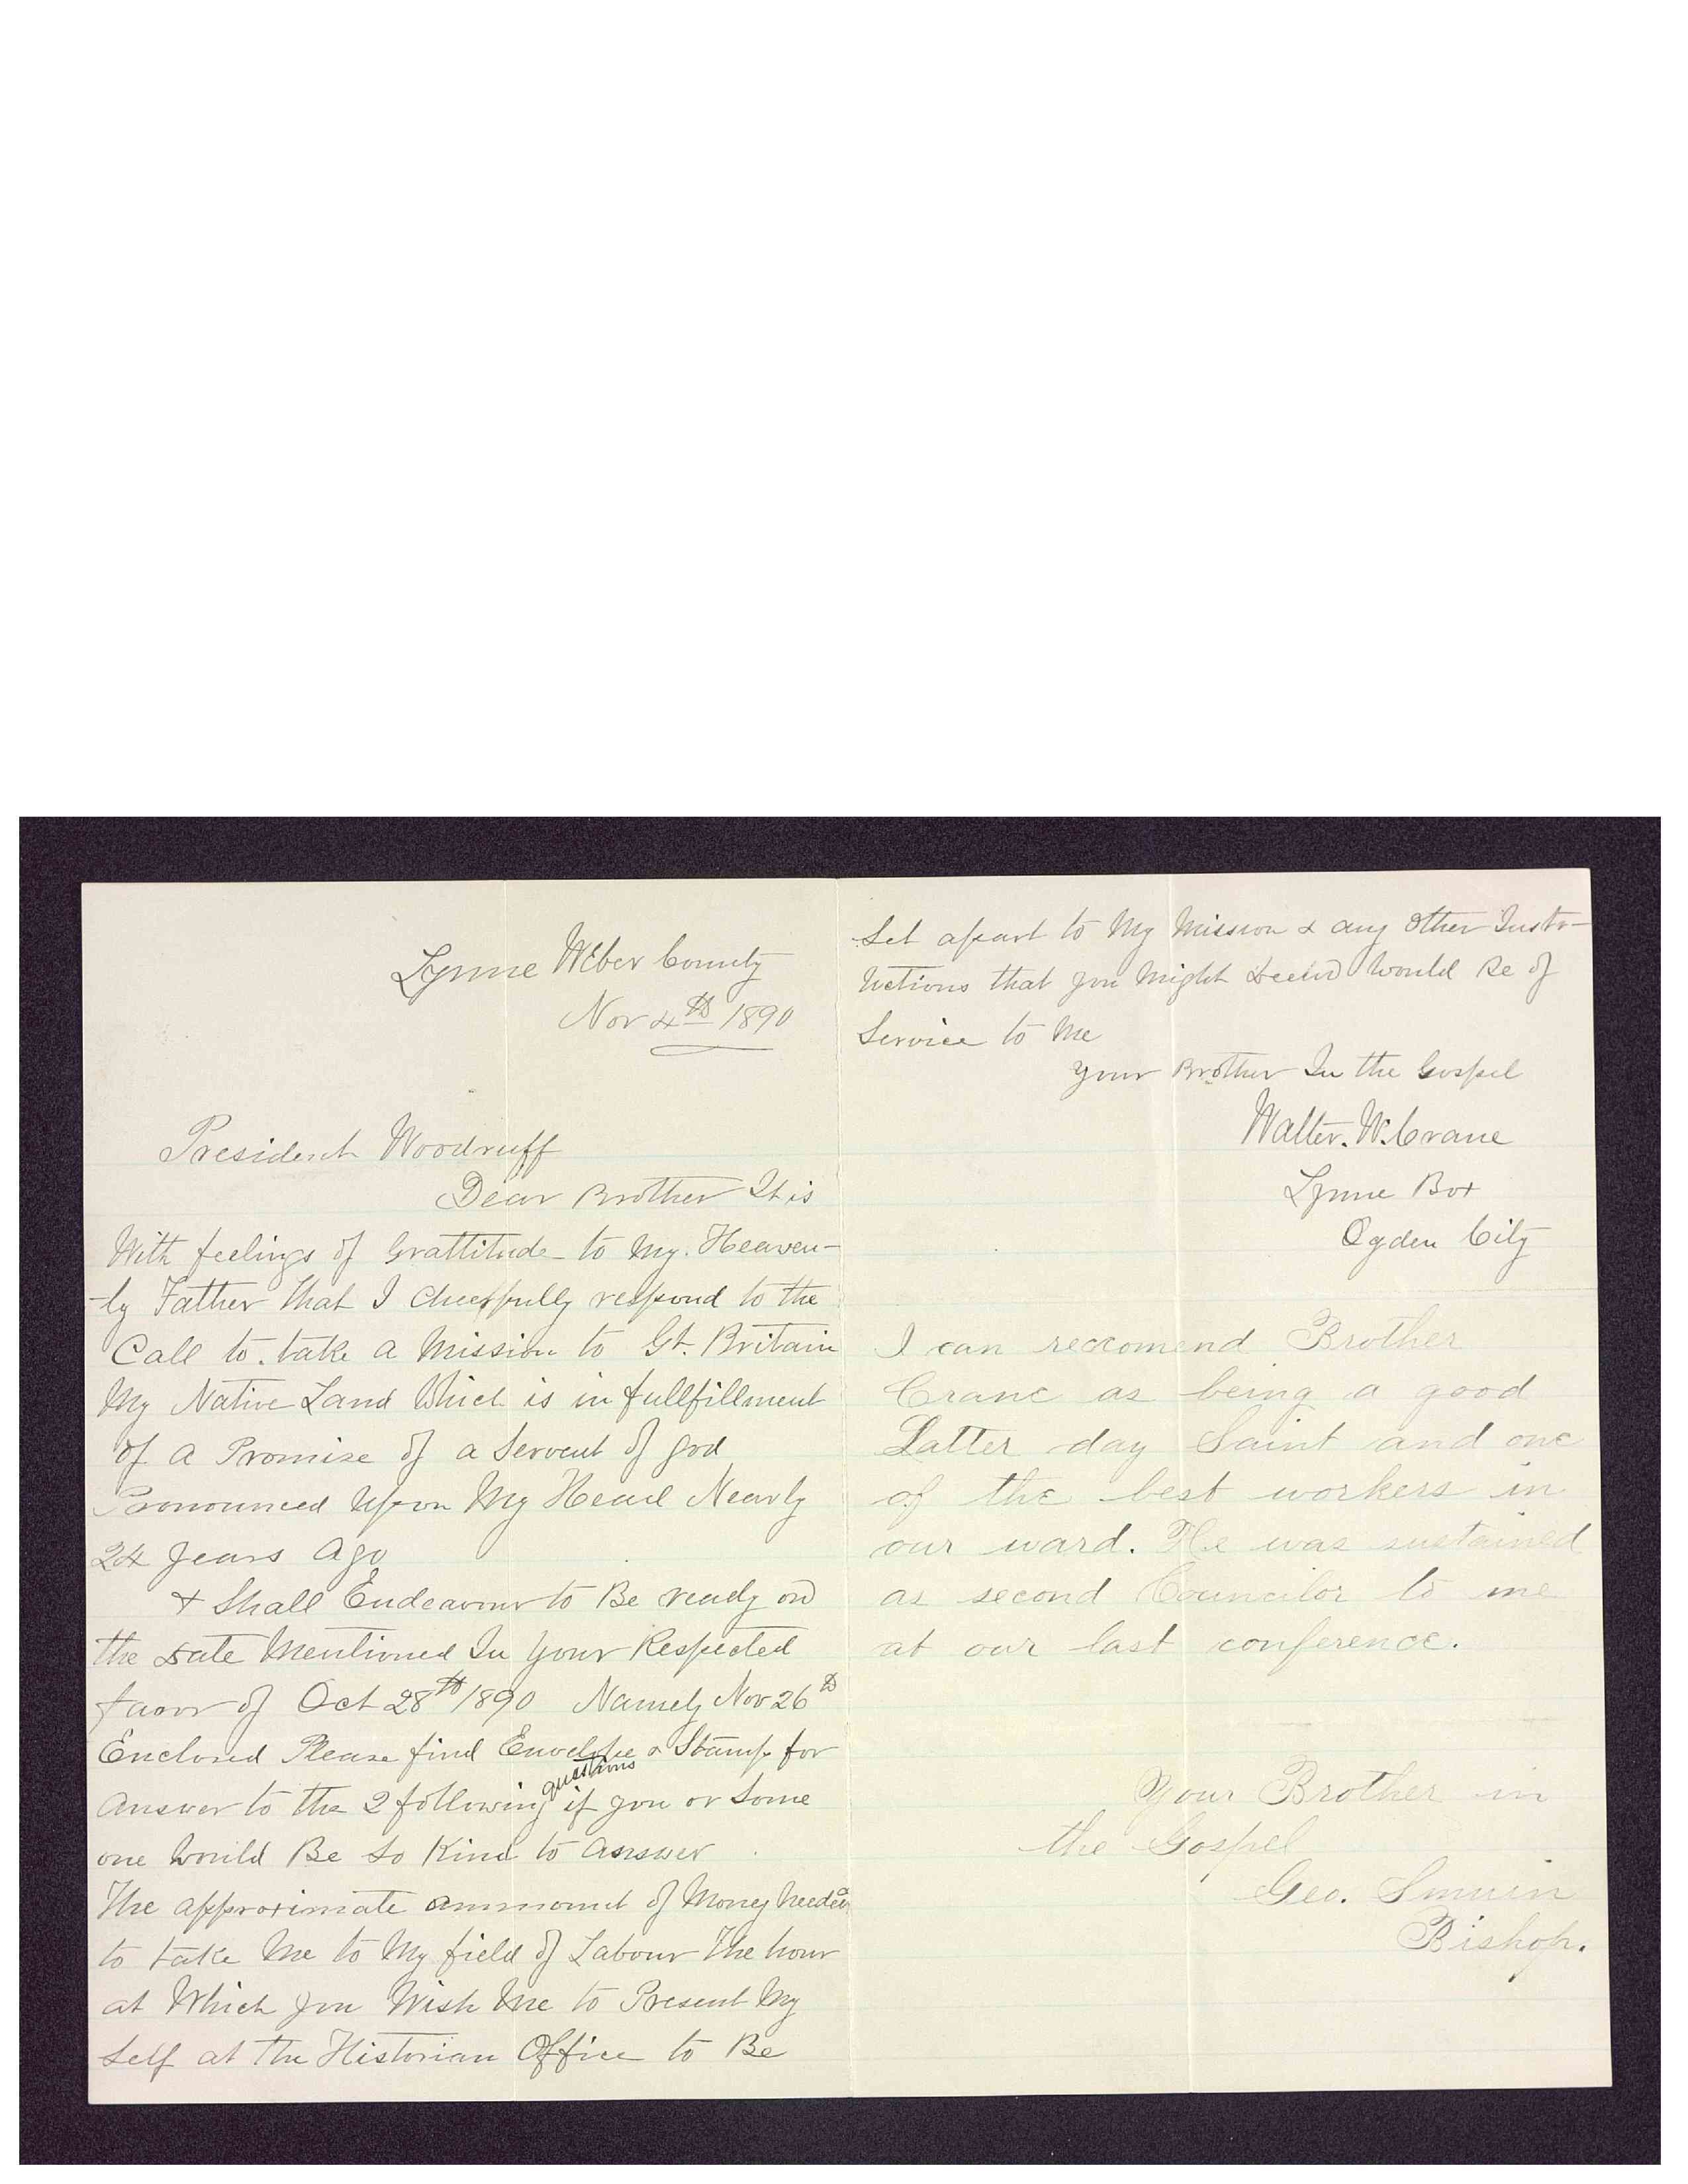 Lynne Weber County
Nov 4th 1890
President Woodruff
Dear Brother It is
With feelings of Grattitude to my Heaven-
-ly Father that I cheerfully respond to the
Call to take a Mission to Gt. Britain
My Native Land Which is in fullfillment
of a Promise of a Servent of god
Pronounced Upon My Head Nearly
24 years ago
& Shall Endeavour to Be ready on
the date Mentioned In your Respected
favor of Oct 28th/1890 Namely Nov 26th
Enclosed Please find Envelope & Stamp for
Answer to the 2 following questions if you or Some
one Would Be So Kind to answer
The approximate ammount of Money Needed
to take Me to My field of Labour The hour
at Which you Wish Me to Present My
Self at the Historian Office to Be
Set apart to My Mission & any other Instr-
uctions that you Might deem Would Be of
Service to Me
your Brother In the Gospel
Walter. W. Crane
Lynne Box
Ogden City
I can reccomend Brother
Crane as being a good
Latter day Saint and one
of the best workers in
our ward. He was sustained
as second Councilor to me
at our last conference.
Your Brother in
the Gospel
Geo. Smuin
Bishop.